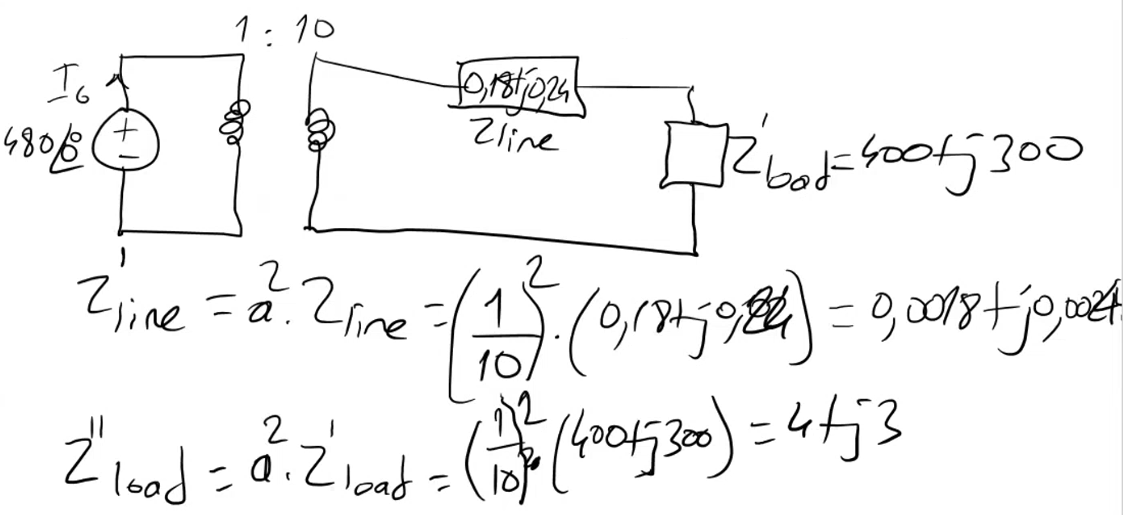 1 : 10
I_G
480/0°
+
-
0,18+j0,24
Zline
Z'load=400+j300
Z'line = a². Zline = (1/10)². (0,18+j0,24) = 0,0018+j0,0024
Z''load = a². Z'load = (1/10)² (400+j300) = 4+j3